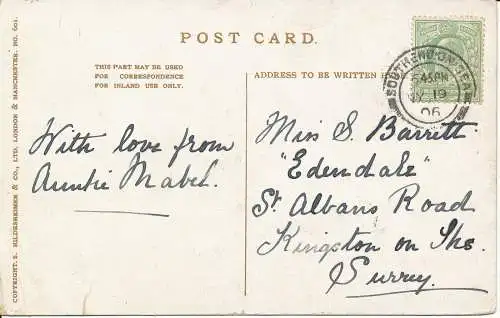 POST CARD.
THIS PART MAY BE USED
FOR CORRESPONDENCE
FOR INLAND USE ONLY.
ADDRESS TO BE WRITTEN
SOUTHEND-ON-SEA
6.45PM
19
06
With love from
Auntie Mabel.
Miss S. Barritt
"Edendale"
St Albans Road
Kingston on The
Surrey.
COPYRIGHT. S. HILDESHEIMER & CO., LTD, LONDON & MANCHESTER. NO. 601.